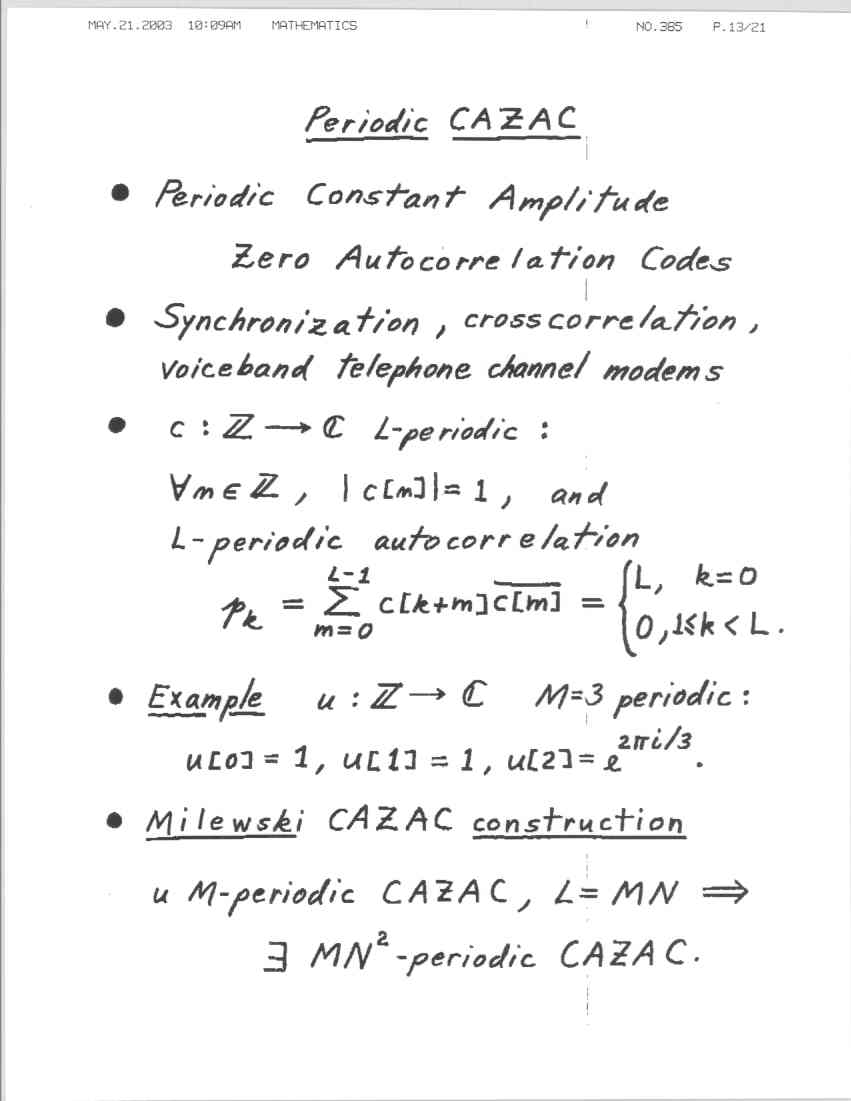 MAY.21.2003 10:09AM MATHEMATICS NO.385 P.13/21
Periodic CAZAC
● Periodic Constant Amplitude
Zero Autocorrelation Codes
● Synchronization, crosscorrelation,
voiceband telephone channel modems
● c : ℤ → ℂ L-periodic :
∀m ∈ ℤ, |c[m]| = 1, and
L-periodic autocorrelation
p_k = ∑_{m=0}^{L-1} c[k+m] \overline{c[m]} = { L, k=0
0, 1≤k < L.
● Example u : ℤ → ℂ M=3 periodic :
u[0] = 1, u[1] = 1, u[2] = e^{2πi/3}.
● Milewski CAZAC construction
u M-periodic CAZAC, L = MN ⟹
∃ MN²-periodic CAZAC.